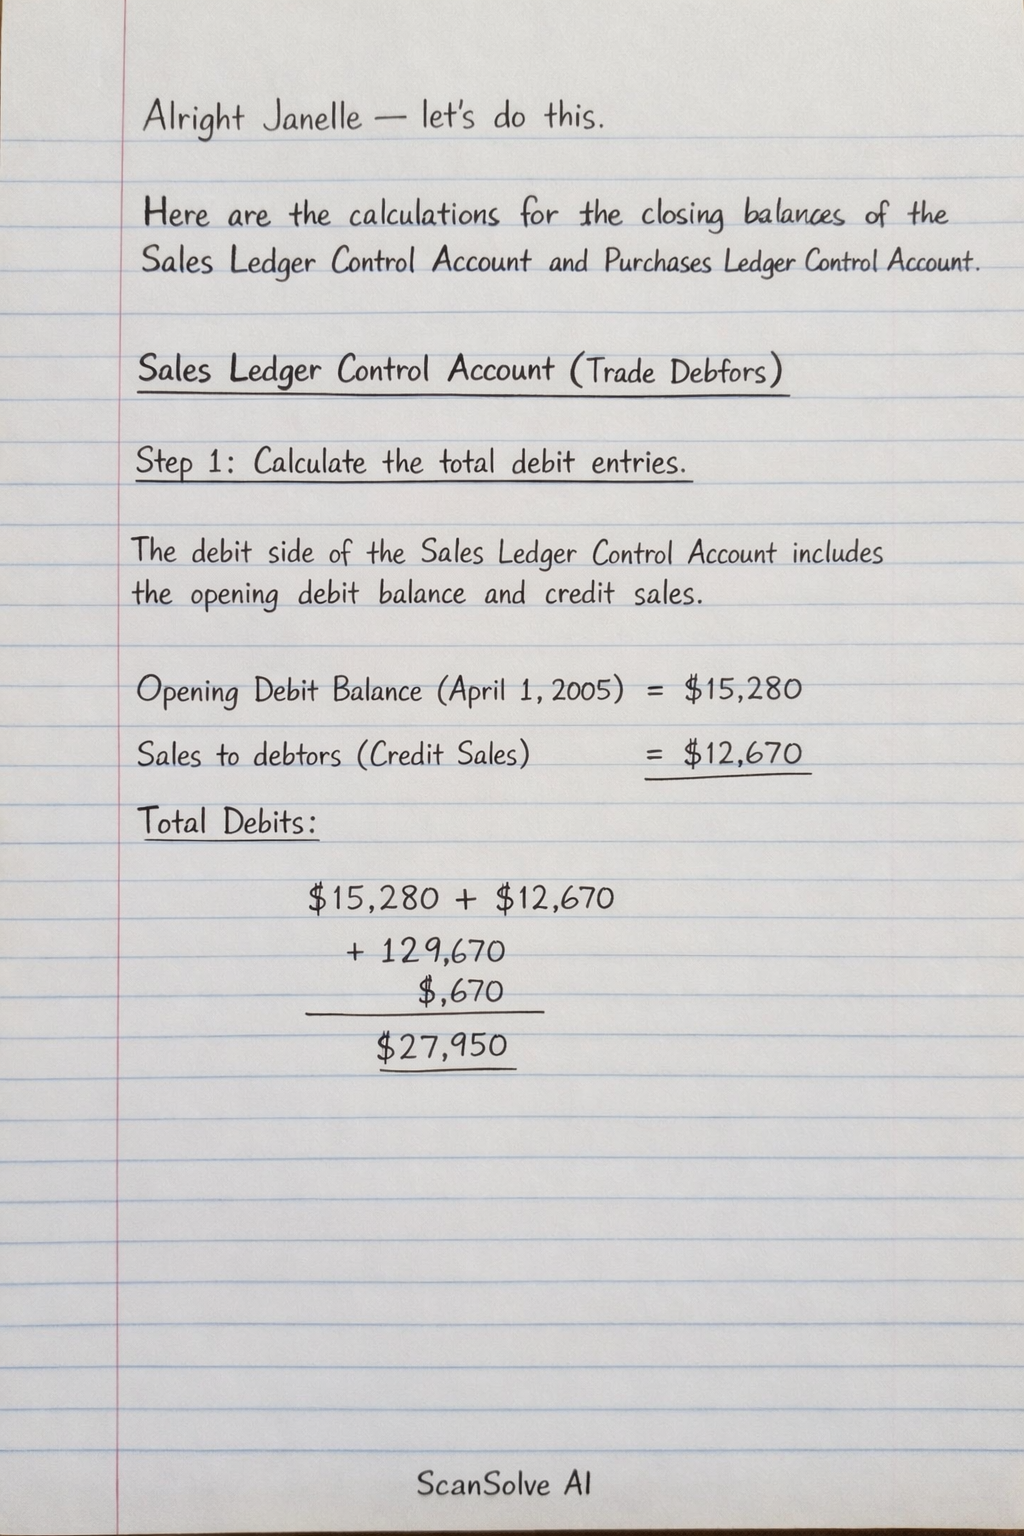 Alright Janelle — let's do this.
Here are the calculations for the closing balances of the
Sales Ledger Control Account and Purchases Ledger Control Account.
Sales Ledger Control Account (Trade Debfors)
Step 1: Calculate the total debit entries.
The debit side of the Sales Ledger Control Account includes
the opening debit balance and credit sales.
Opening Debit Balance (April 1, 2005) = $15,280
Sales to debtors (Credit Sales) = $12,670
Total Debits:
$15,280 + $12,670
+ 129,670
$,670
$27,950
ScanSolve AI